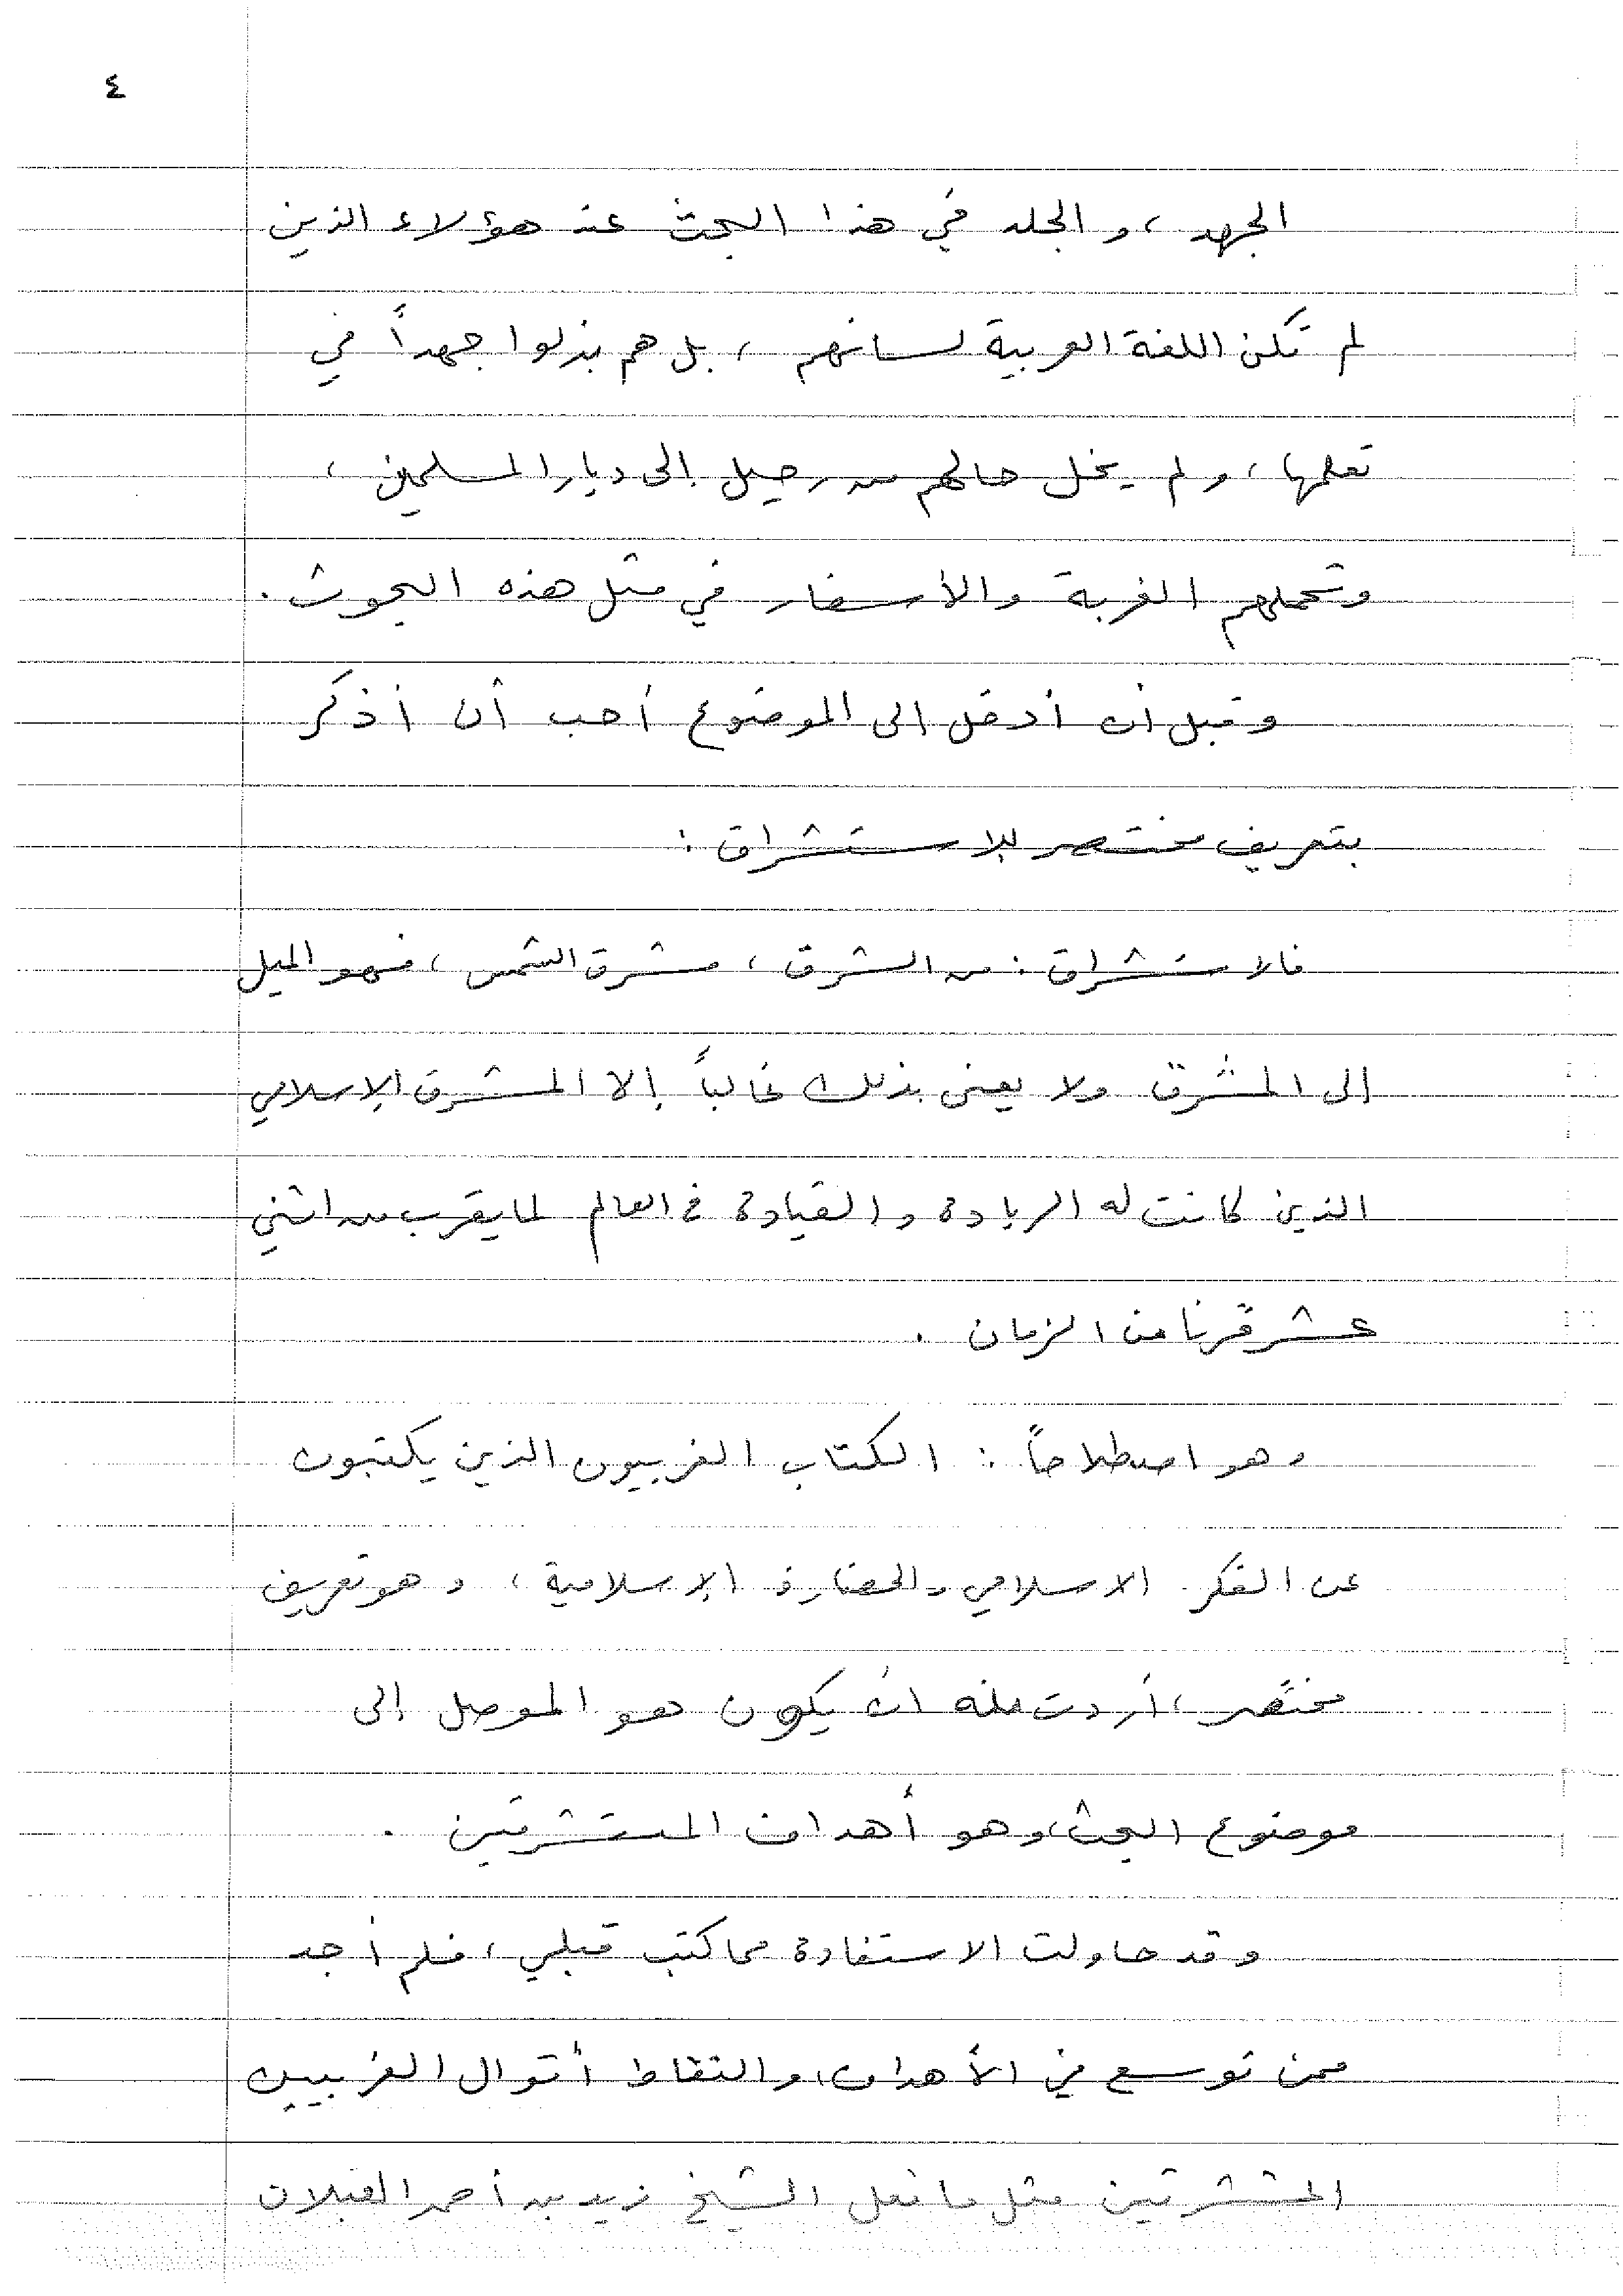 ٤
الجهد ، والجلد في هذا البحث عند هؤلاء الذين
لم تكن اللغة العربية لسانهم ، بل هم بذلوا جهداً في
تعلمها ، ولم يخل حالهم من رحيل إلى ديار المسلمين ،
وتحملهم الغربة والأسفار في مثل هذه البحوث .
وقبل أن أدخل إلى الموضوع أحب أن أذكر
بتعريف مختصر للإستشراق :
فالاستشراق : من الشرق ، مشرق الشمس ، فهو الميل
إلى المشرق ولا يعنى بذلك غالباً إلا المشرق الإسلامي
الذين كانت له الريادة والقيادة في العالم لما يقرب من اثني
عشر قرنا من الزمان .
وهو اصطلاحاً : الكتاب الغربيون الذين يكتبون
عن الفكر الاسلامي والحضارة الإسلامية ، وهو تعريف
مختصر ، أردت منه أن يكون هو الموصل إلى
موضوع البحث ، وهو أهداف المستشرقين .
وقد حاولت الاستفادة مما كتب قبلي ، فلم أجد
ممن توسع في الأهداف ، والتقاط أقوال الغربيين
المستشرقين مثل ما فعل الشيخ زيد بن أحمد العبلان